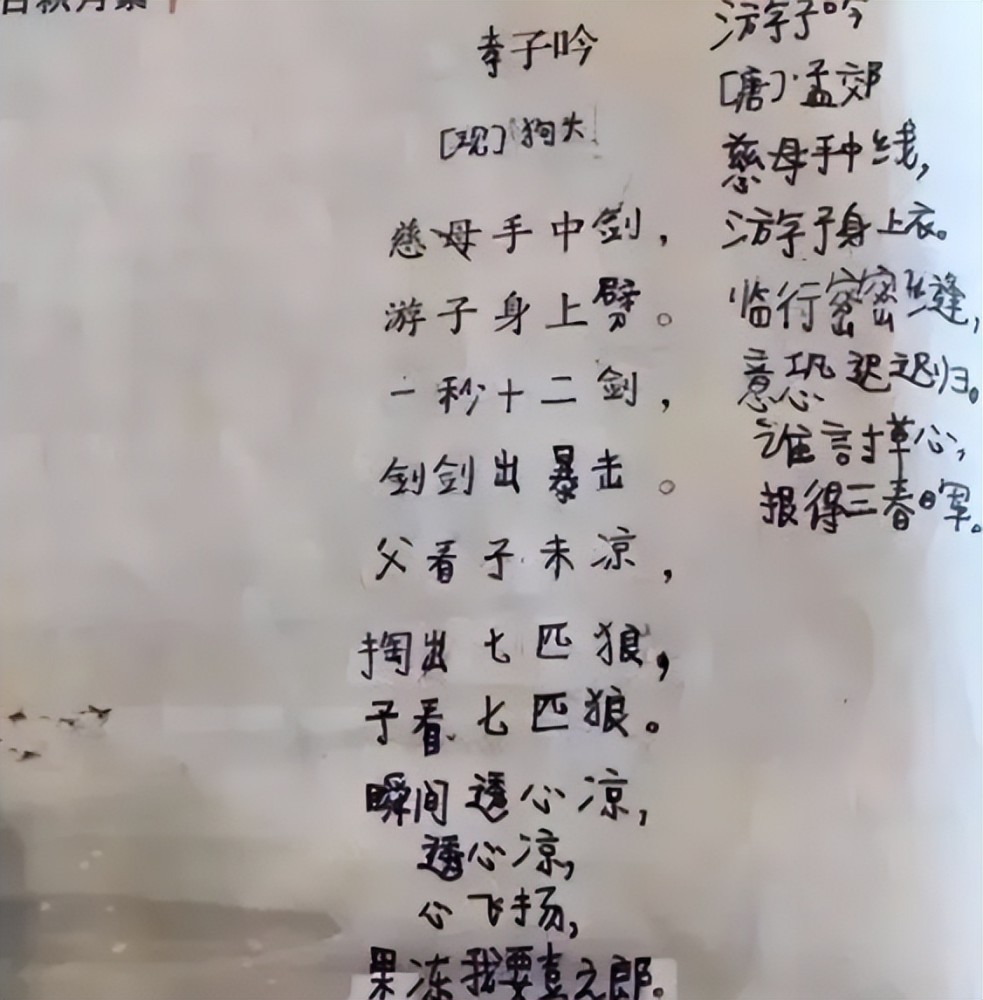 孝子吟
[现]狗头
慈母手中剑，
游子身上劈。
一秒十二剑，
剑剑出暴击。
父看子未凉，
掏出七匹狼，
子看七匹狼。
瞬间透心凉，
透心凉，
心飞扬，
果冻我要喜之郎。
游子吟
[唐]·孟郊
慈母手中线，
游子身上衣。
临行密密缝，
意恐迟迟归。
谁言寸草心，
报得三春晖。